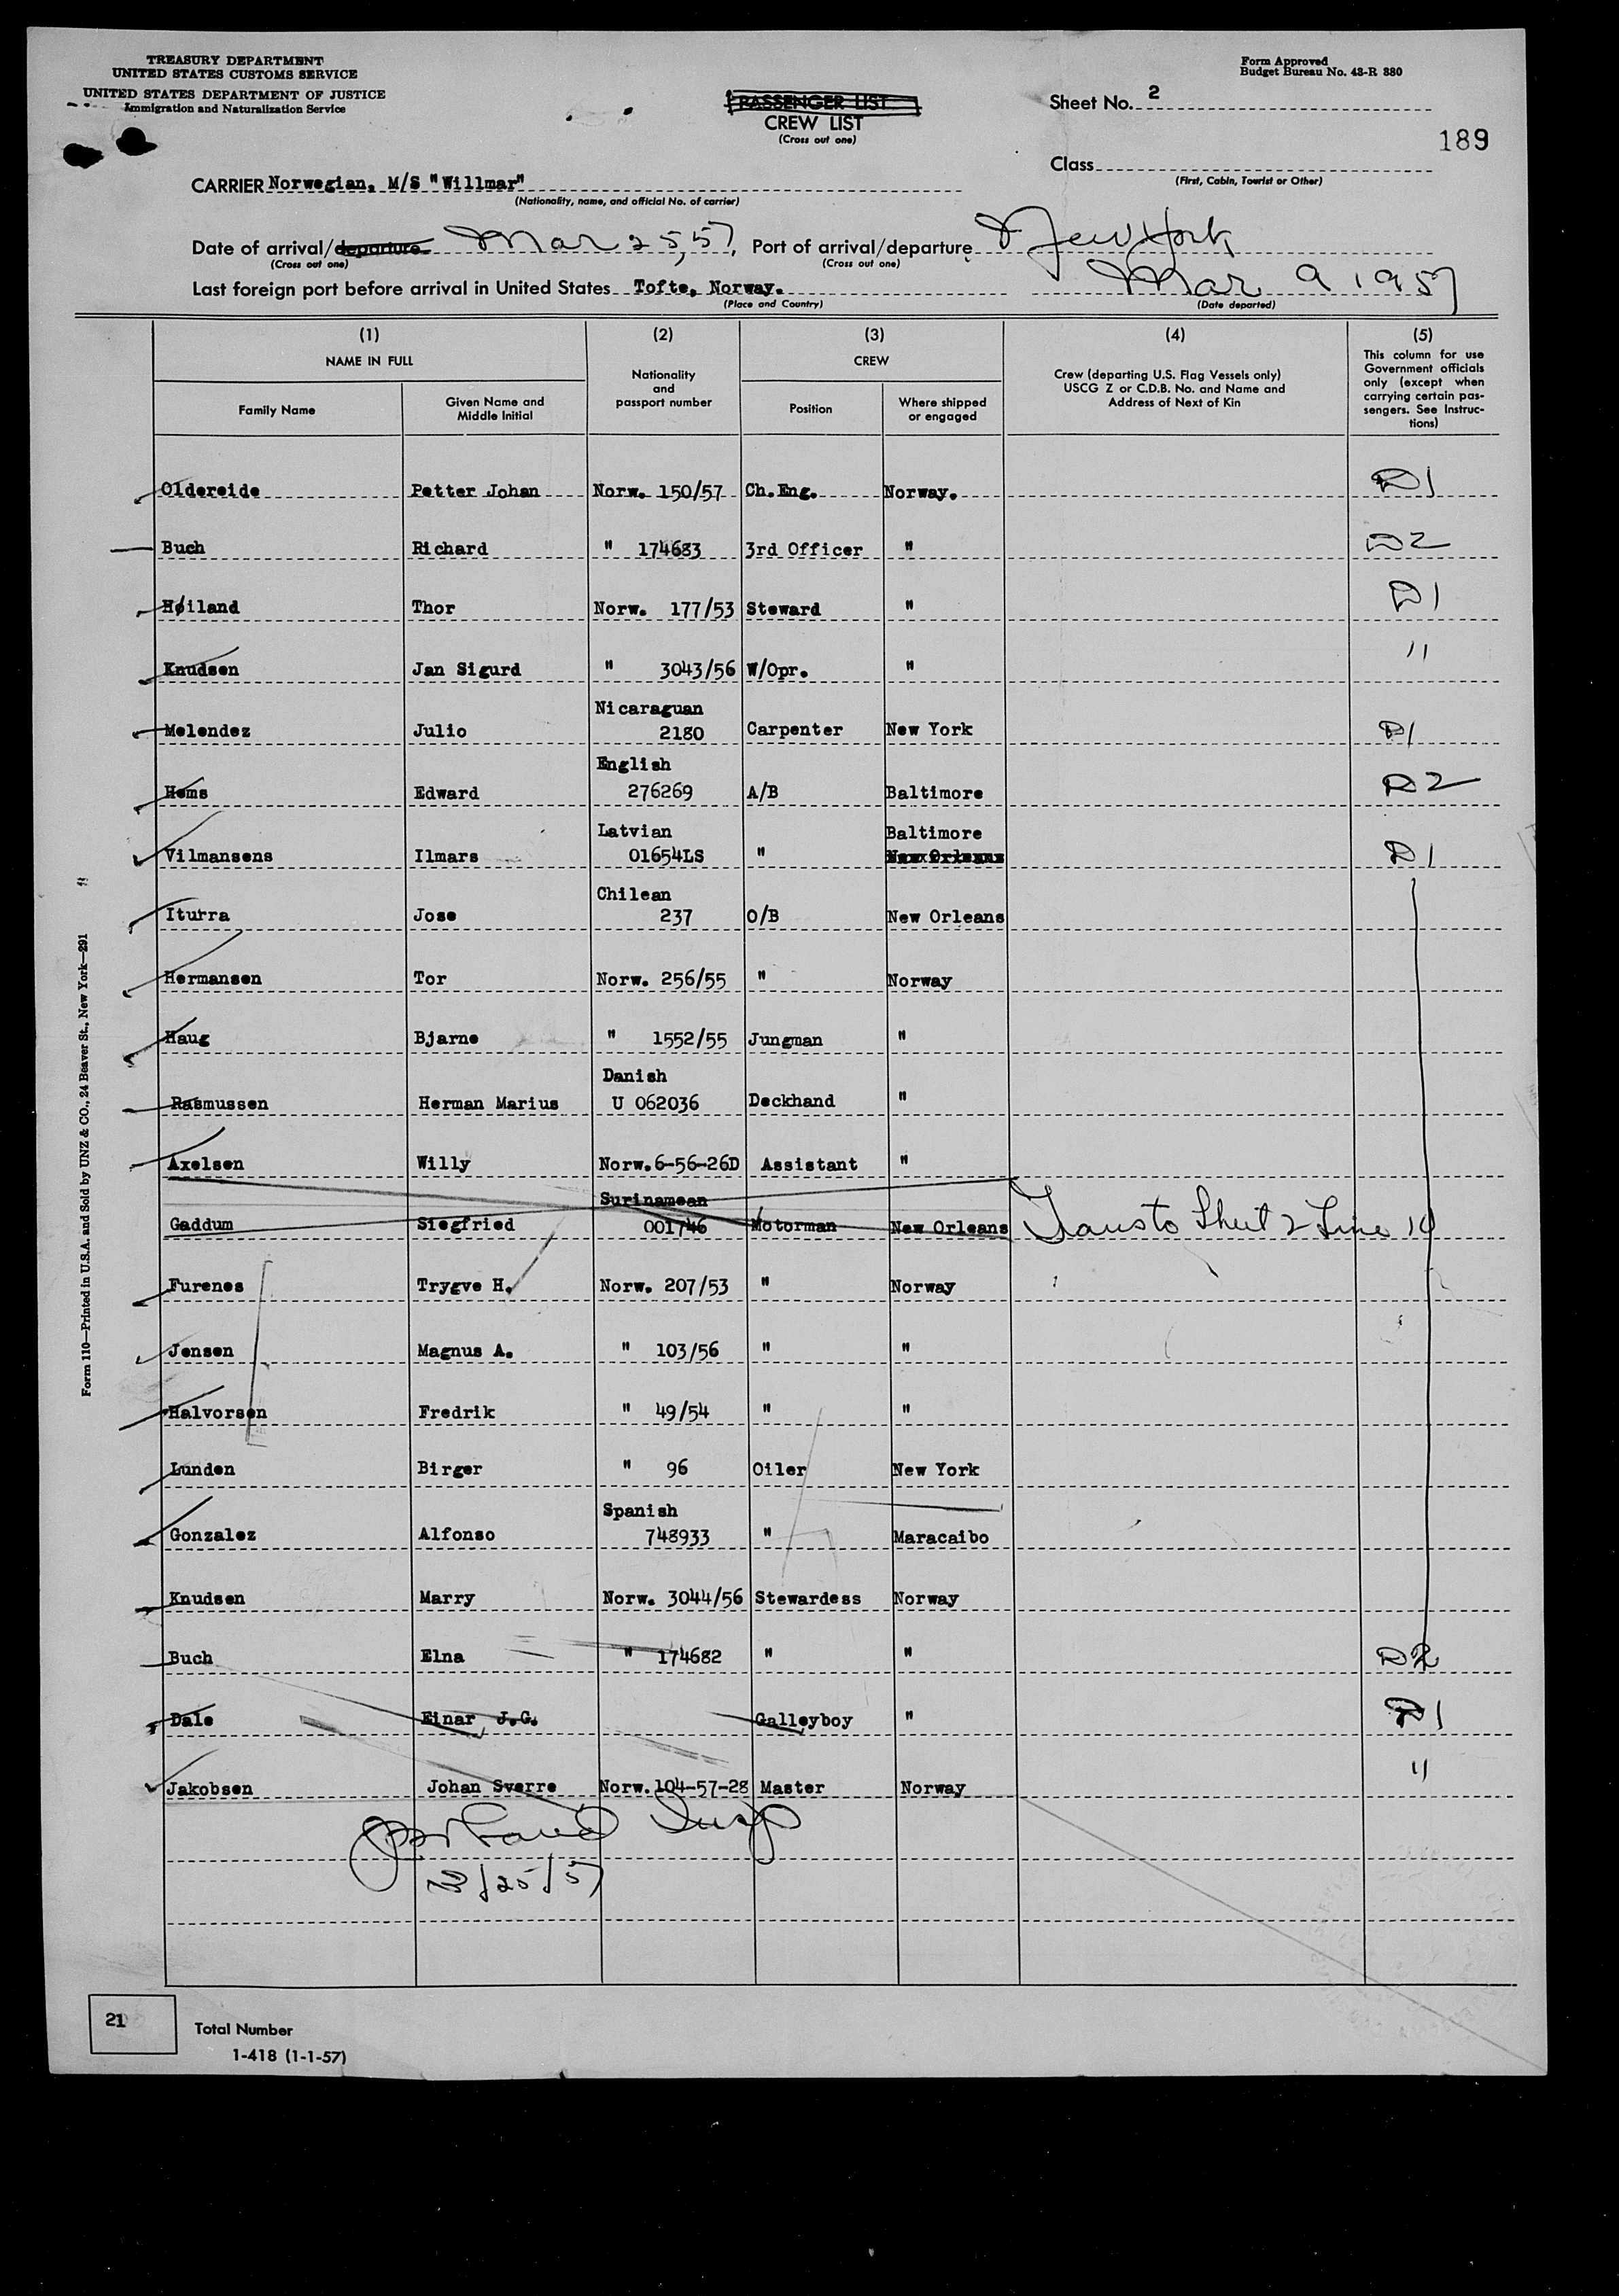 TREASURY DEPARTMENT
UNITED STATES CUSTOMS SERVICE
UNITED STATES DEPARTMENT OF JUSTICE
Immigration and Naturalization Service
Form Approved
Budget Bureau No. 43-R 380
PASSENGER LIST
CREW LIST
(Cross out one)
Sheet No. 2
189
Class
(First, Cabin, Tourist or Other)
CARRIER Norwegian, M/S "Willmar"
(Nationality, name, and official No. of carrier)
Date of arrival/departure Mar 25, 57, Port of arrival/departure New York
(Cross out one) (Cross out one)
Last foreign port before arrival in United States Tofte, Norway. Mar 9 1957
(Place and Country) (Date departed)
(1) (2) (3) (4) (5)
NAME IN FULL
Family Name
Given Name and Middle Initial
Nationality and passport number
CREW
Position
Where shipped or engaged
Crew (departing U.S. Flag Vessels only)
USCG Z or C.D.B. No. and Name and
Address of Next of Kin
This column for use
Government officials
only (except when
carrying certain pas-
sengers. See Instruc-
tions)
Oldereide Petter Johan Norw. 150/57 Ch.Eng. Norway. D1
Buch Richard " 174683 3rd Officer " D2
Høiland Thor Norw. 177/53 Steward " D1
Knudsen Jan Sigurd " 3043/56 W/Opr. " "
Nicaraguan
Melendez Julio 2180 Carpenter New York D1
English
Hems Edward 276269 A/B Baltimore D2
Latvian Baltimore
Vilmansens Ilmars 01654LS " New Orleans D1
Chilean
Iturra Jose 237 O/B New Orleans
Hermansen Tor Norw. 256/55 " Norway
Haug Bjarne " 1552/55 Jungman "
Danish
Rasmussen Herman Marius U 062036 Deckhand "
Axelsen Willy Norw.6-56-26D Assistant "
Surinamean
Gaddum Siegfried 001746 Motorman New Orleans Trans to Sheet 2 Line
Furenes Trygve H. Norw. 207/53 " Norway
Jensen Magnus A. " 103/56 " "
Halvorsen Fredrik " 49/54 " "
Lunden Birger " 96 Oiler New York
Spanish
Gonzalez Alfonso 748933 " Maracaibo
Knudsen Marry Norw. 3044/56 Stewardess Norway
Buch Elna " 174682 " " D2
Dale Einar J.G. Galleyboy " D1
Jakobsen Johan Sverre Norw.104-57-28 Master Norway "
3/25/57
21
Total Number
1-418 (1-1-57)
Form 110—Printed in U.S.A. and Sold by UNZ & CO., 24 Beaver St., New York—291